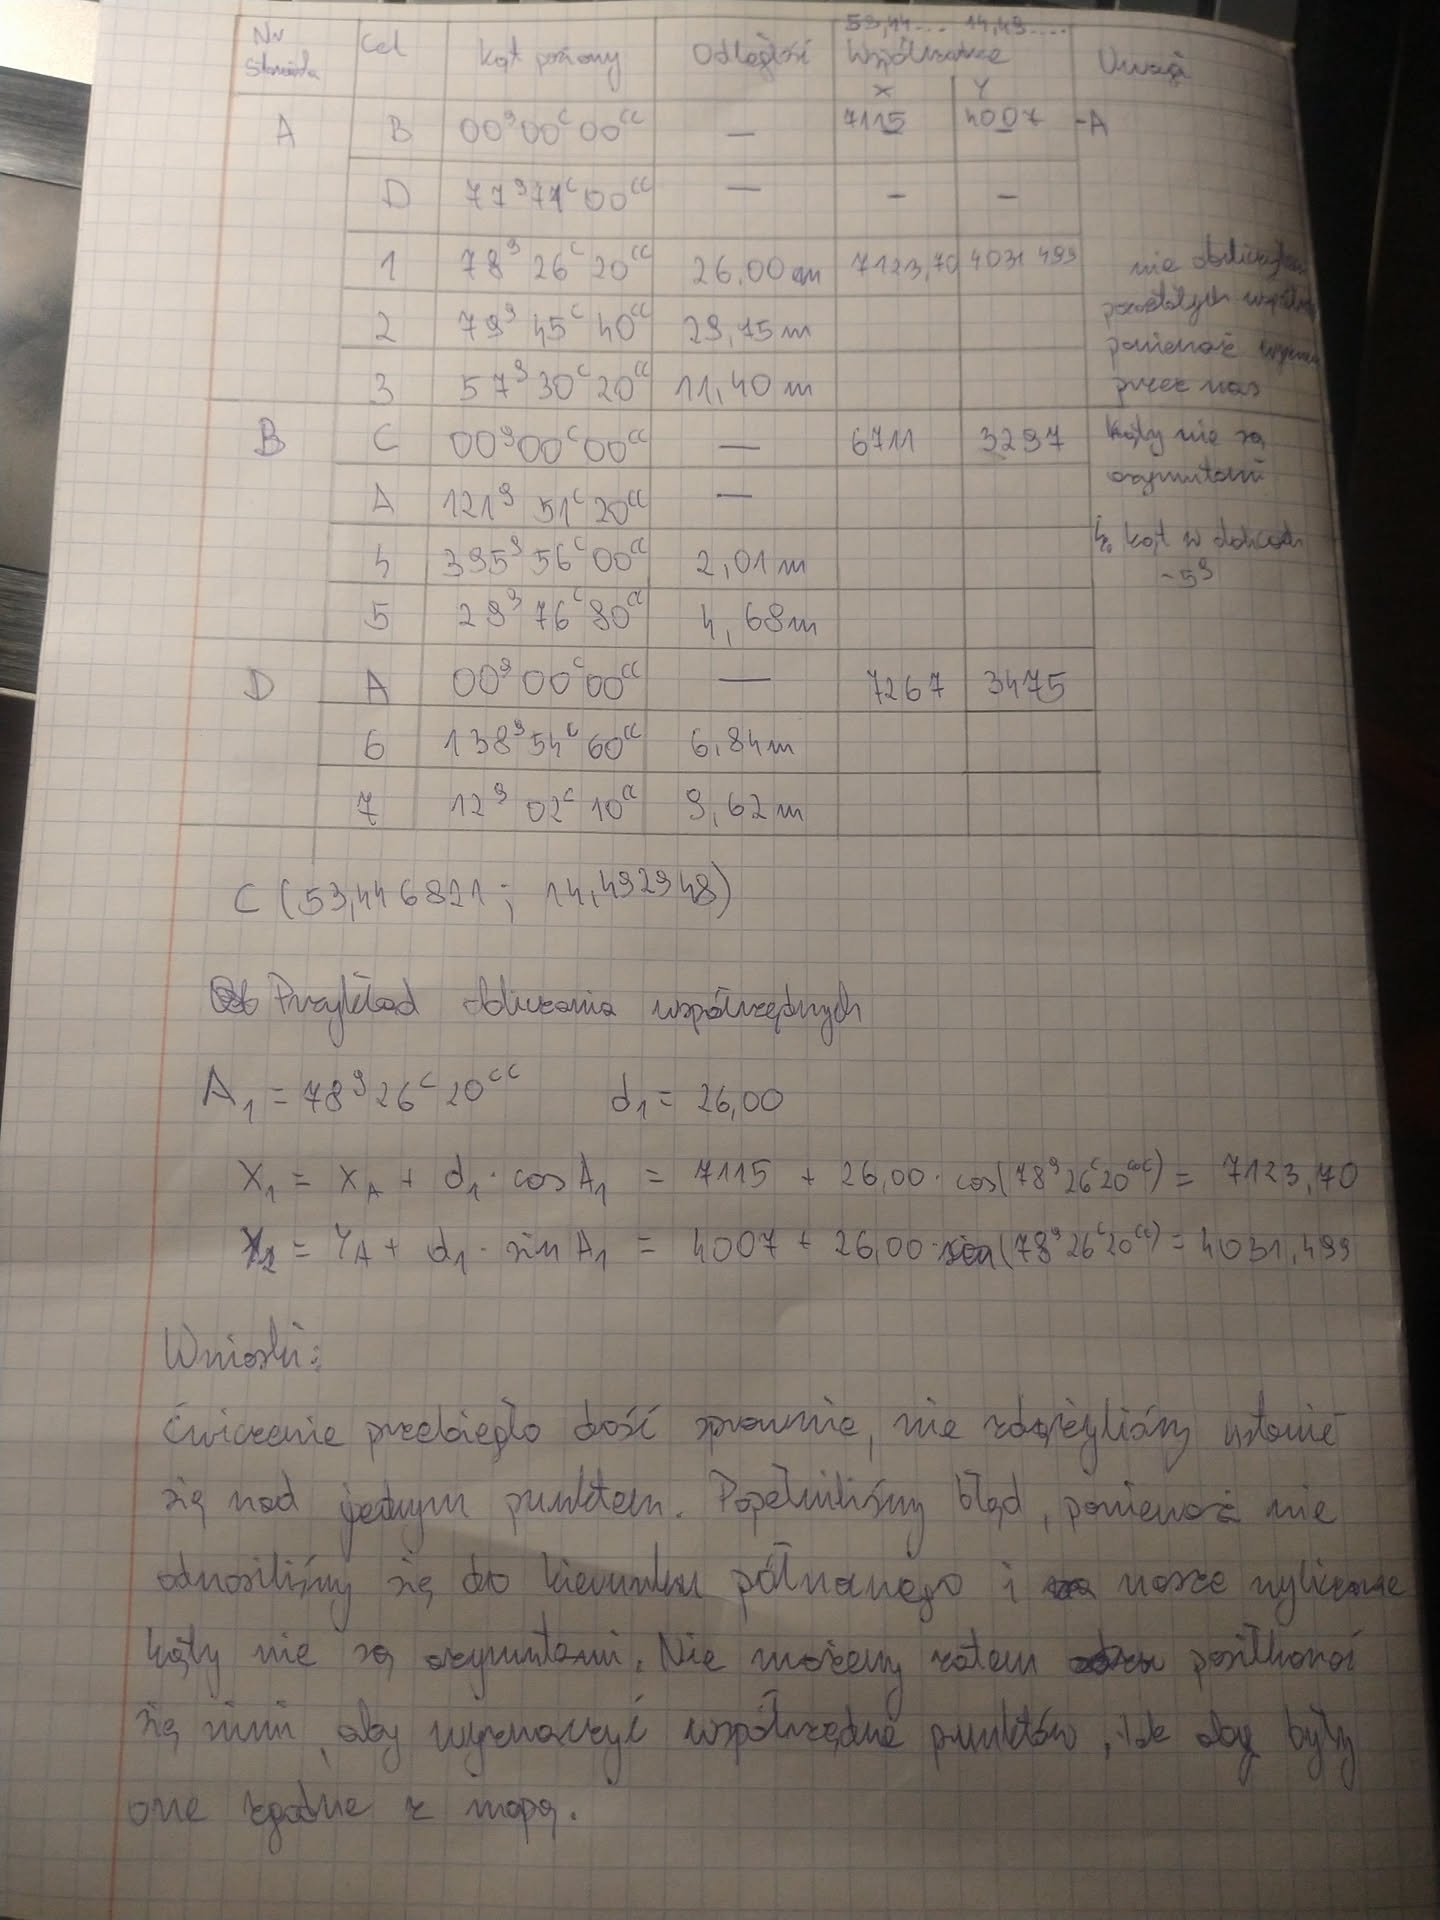 53,44... 14,49....
Nr stanowiska Cel Kąt poziomy Odległość Współrzędne Uwagi
X Y
A B 00g00c00cc — 7115 4007 -A
D 77g71c00cc — - -
1 78g 26c 20cc 26,00 m 7123,70 4031 499
2 79g 45c 40cc 29,75 m
3 57g 30c 20cc 11,40 m
nie obliczyłem
pozostałych
ponieważ
przez nas
B C 00g00c00cc — 6711 3297
kąty nie są
azymutami
A 121g 51c 20cc —
4 395g 56c 00cc 2,01 m
kąt w
~5g
5 29g 76c 80cc 4,68 m
D A 00g 00c 00cc — 7267 3475
6 138g 54c 60cc 6,84 m
7 12g 02c 10cc 9,62 m
C (53,446821; 14,492948)
Przykład obliczania współrzędnych
A1 = 78g 26c 20cc d1 = 26,00
X1 = XA + d1 · cos A1 = 7115 + 26,00 · cos(78g26c20cc) = 7123,70
= YA + d1 · sin A1 = 4007 + 26,00 · sin(78g26c20cc) = 4031,499
Wnioski:
Ćwiczenie przebiegło dość sprawnie, nie zdążyliśmy ustawić
się nad jednym punktem. Popełniliśmy błąd, ponieważ nie
odnosiliśmy się do kierunku północnego i nasze wyliczone
kąty nie są azymutami. Nie możemy zatem posiłkować
się nimi, aby wyznaczyć współrzędne punktów, tak aby były
one zgodne z mapą.